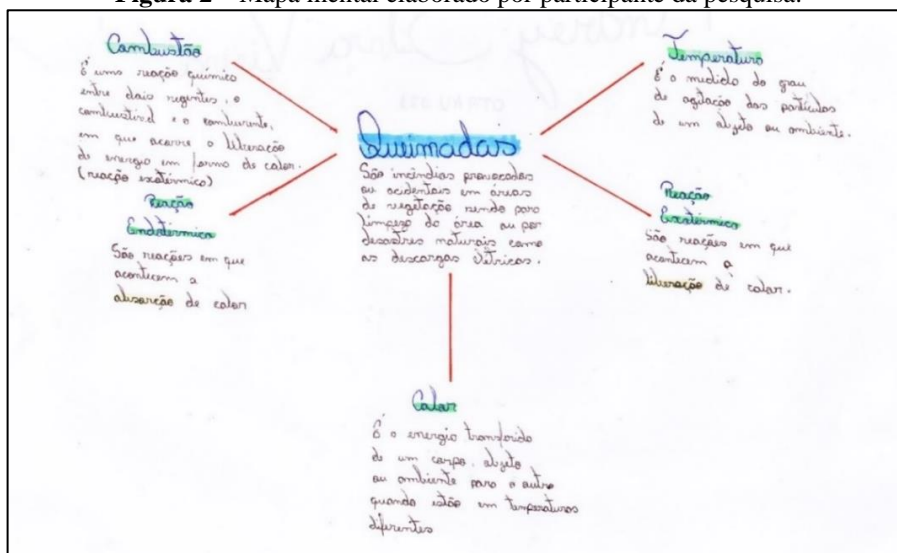 Figura 2 – Mapa mental elaborado por participante da pesquisa.
Combustão
É uma reação químico
entre dois regentes, o
combustível e o comburente,
em que ocorre o liberação
de energio em forma de calor.
(reação exotérmico)
Reação
Endotérmica
São reações em que
acontecem a
absorção de calor
Queimadas
São incêndios provocados
ou acidentais em áreas
de vegetação sendo para
limpeza da área ou por
desastres naturais como
as descargas elétricas.
Temperatura
É o medido do grau
de agitação das partículas
de um objeto ou ambiente.
Reação
Exotérmica
São reações em que
acontecem a
liberação de calor.
Calor
É o energio transferido
de um corpo, objeto
ou ambiente para o outro
quando estão em temperaturas
diferentes